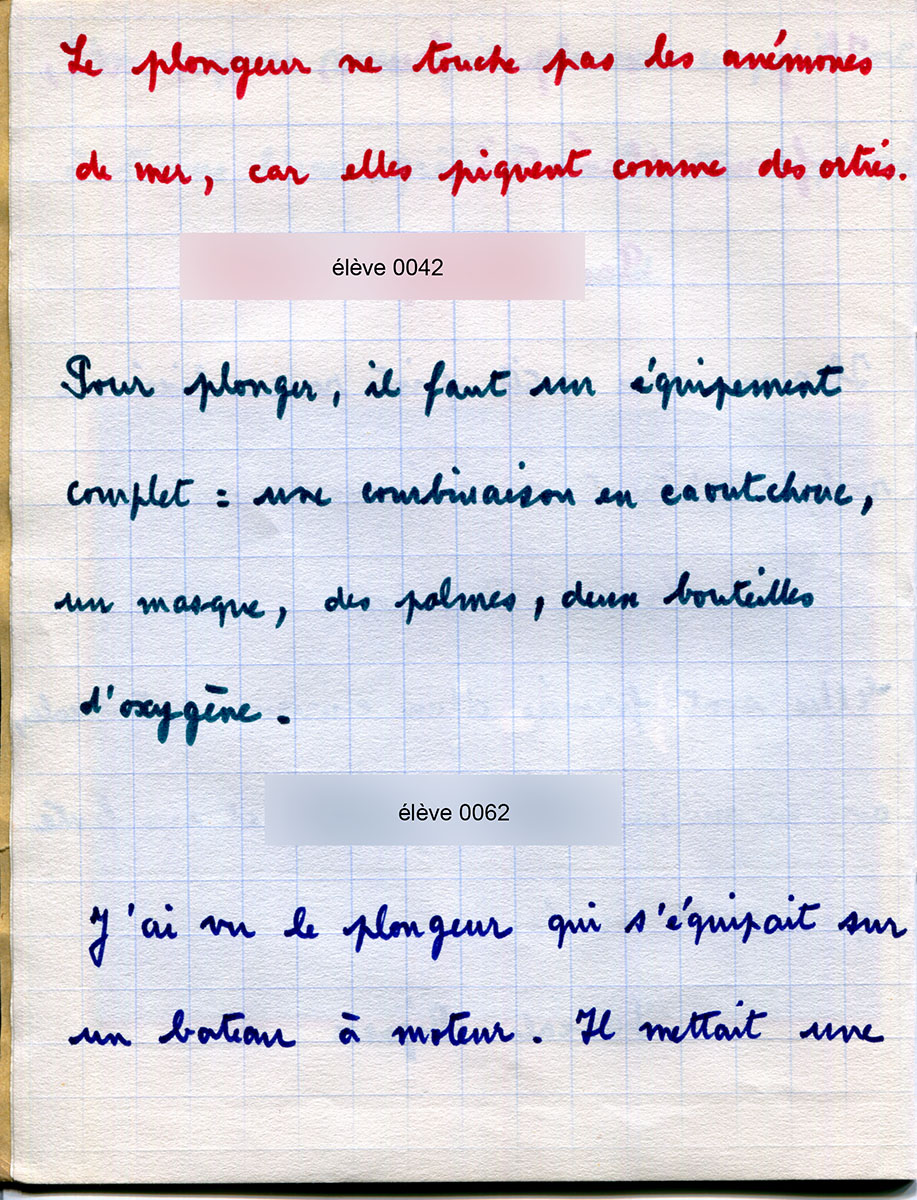 Le plongeur ne touche pas les anémones
de mer, car elles piquent comme des ortiés.
élève 0042
Pour plonger, il faut un équipement
complet : une combinaison en caoutchouc,
un masque, des palmes, deux bouteilles
d'oxygène.
élève 0062
J'ai vu le plongeur qui s'équipait sur
un bateau à moteur. Il mettait une